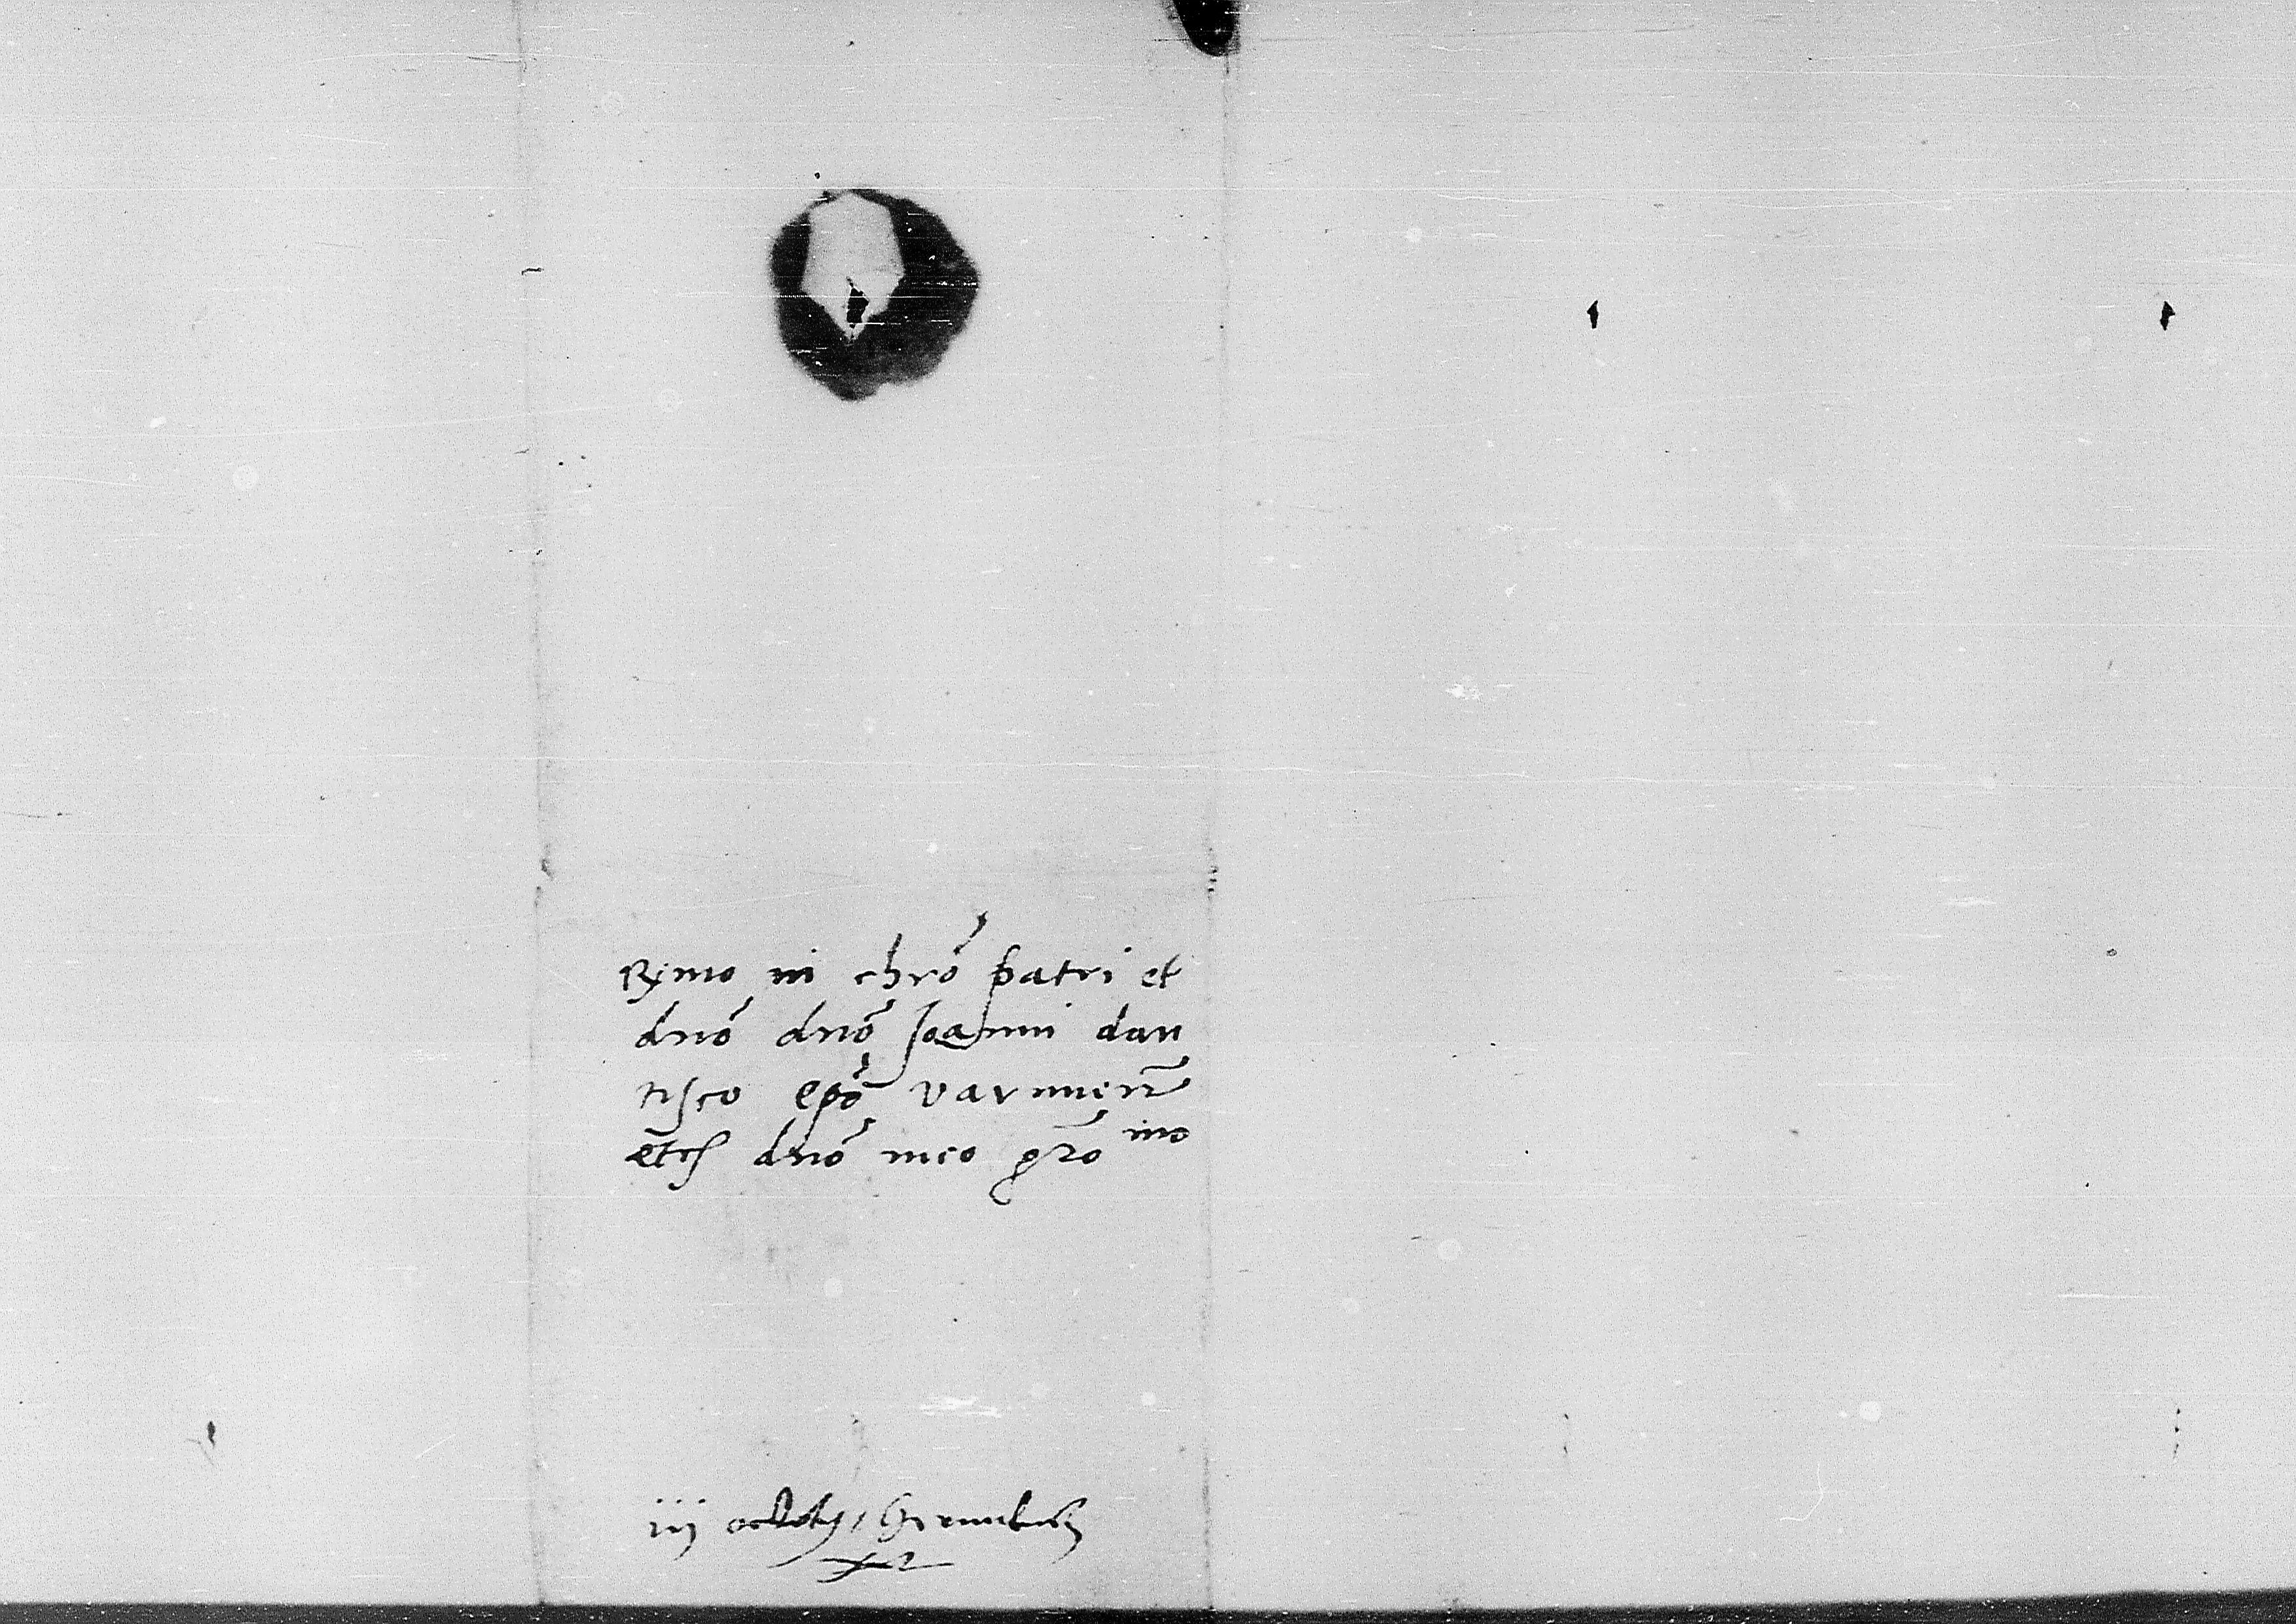 Rimo in chro patri et
dno dno Joanni dan
tisco epo varmien
etc dno meo gro mo
iij octobr,